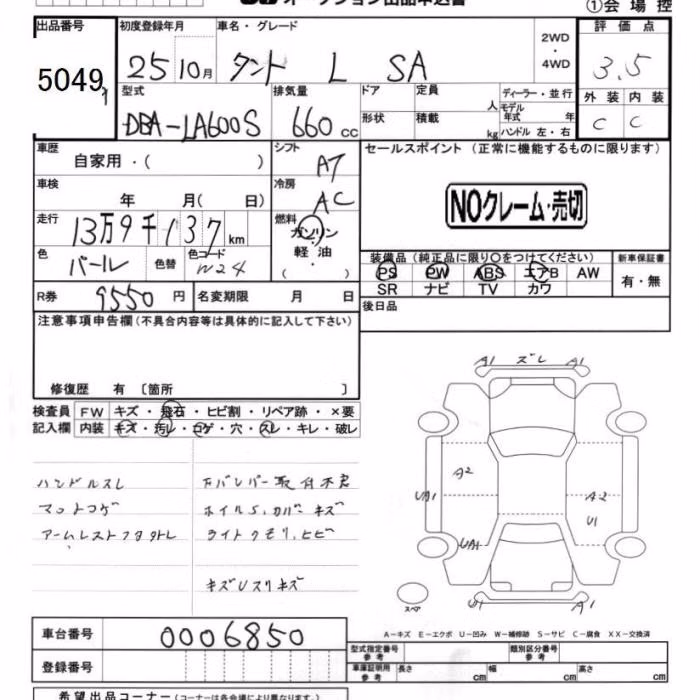 オークション出品申込書
①会場控
出品番号 初度登録年月 車名・グレード 2WD・4WD 評価点
5049 25 10月 タント L SA 3.5
型式 排気量 ドア 定員 人 ディーラー・並行 外装 内装
DBA-LA600S 660cc 形状 積載 kg モデル年式 年 ハンドル 左・右 C C
車歴 自家用・( ) シフト AT セールスポイント (正常に機能するものに限ります)
車検 年 月( 日) 冷房 AC
NOクレーム・売切
走行 13万9千137km 燃料 ガソリン
色 パール 色替 色コード W24 軽油・( )
装備品 (純正品に限り○をつけてください) 新車保証書
PS PW ABS エアB AW 有・無
SR ナビ TV カワ
R券 9550円 名変期限 月 日 後日品
注意事項申告欄(不具合内容等は具体的に記入して下さい)
修復歴 有 〔箇所 〕
検査員 FW キズ・飛石・ヒビ割・リペア跡・×要
記入欄 内装 キズ・汚レ・コゲ・穴・スレ・キレ・破レ
ハンドルスレ Fバンパー取付不良
マットコゲ ホイルS,カバーキズ
アームレストフタタトレ ライトクモリ,ヒビ
キズUスリキズ
A1 ズレ A1
A2
UA1 A2
U1
UA1
U1 A1
スペア
A-キズ E-エクボ U-凹み W-補修跡 S-サビ C-腐食 XX-交換済
車台番号 0006850
型式指定番号 参考 類別区分番号 参考
登録番号 車庫証明用 参考 長さ cm 幅 cm 高さ cm
希望出品コーナー(コーナーは各会場により異なります。)